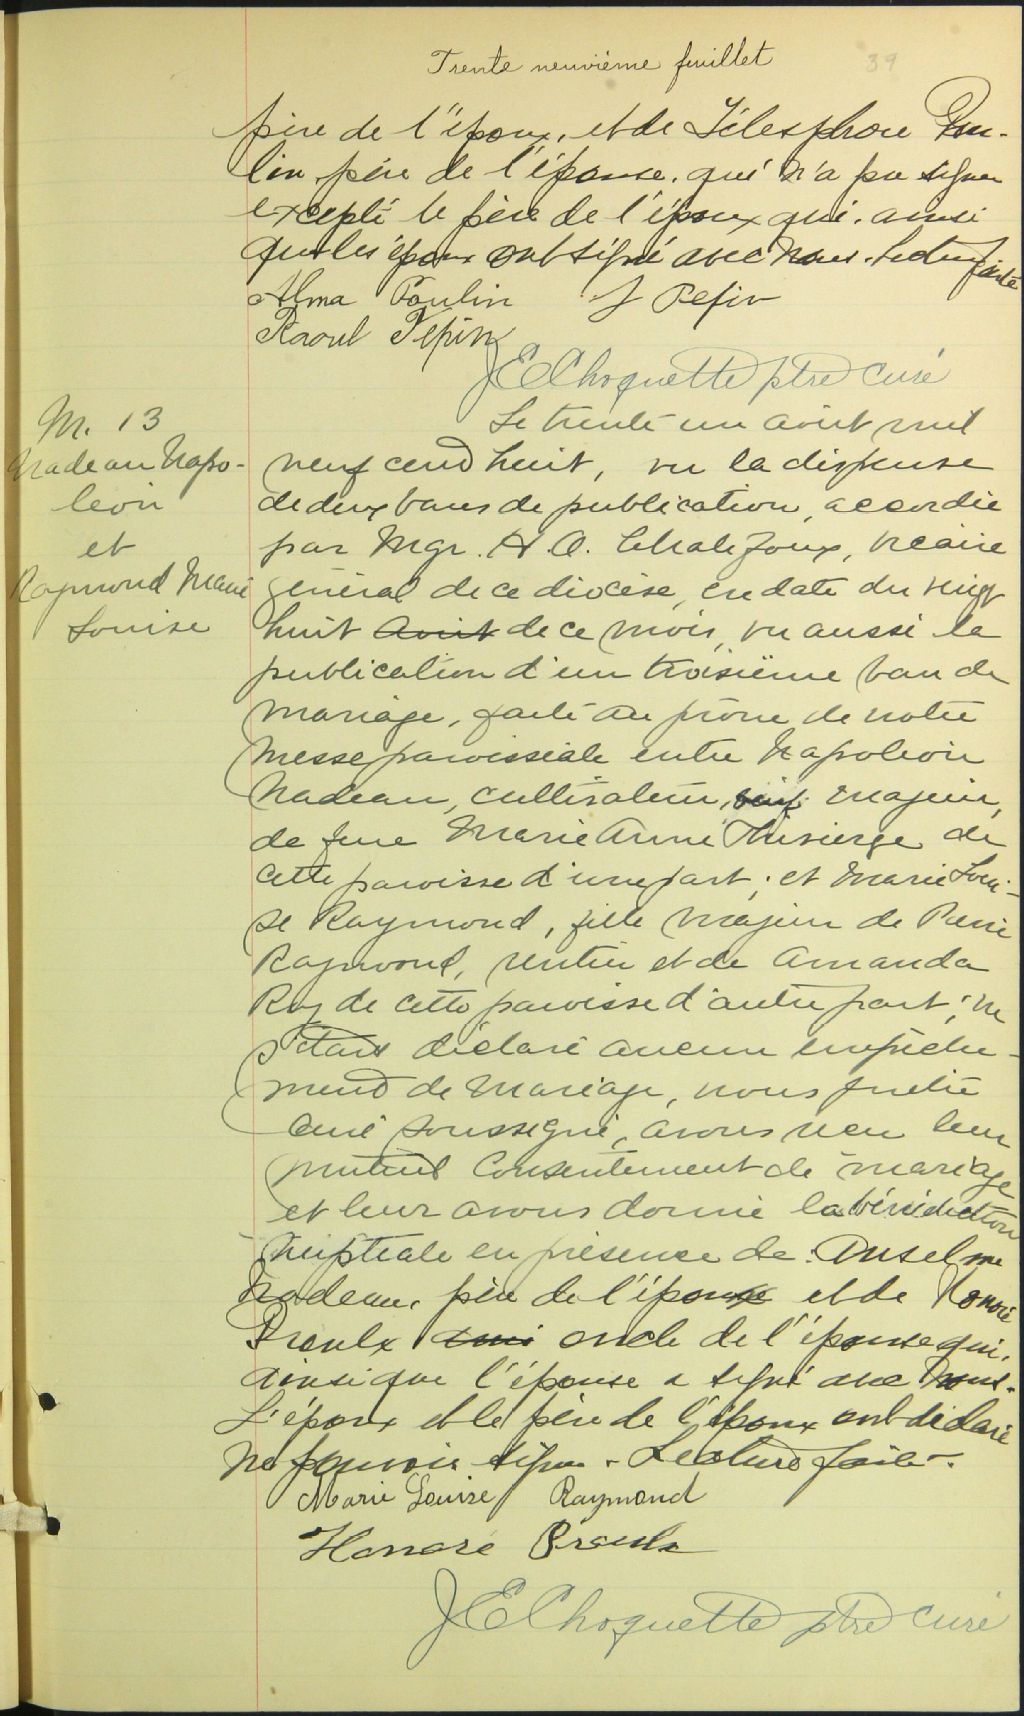 Trente neuvième feuillet
39
père de l'époux, et de Télesphore Pou-
lin père de l'épouse. qui n'a pu signer
excepté le père de l'époux qui. ainsi
que les époux ont signé avec nous. Lecture faite
Alma Poulin J Pepin
Raoul Pepin
J E Choquette ptre curé
M. 13
Nadeau Napo-
leon
et
Raymond Marie
Louise
Le trente un août mil
neuf cent huit, vu la dispense
de deux bans de publication, accordée
par Mgr. H O. Chalifoux, vicaire
général de ce diocèse, en date du vingt
huit août de ce mois, vu aussi la
publication d'un troisième ban de
mariage, faite au prône de notre
messe paroissiale entre Napoleon
Nadeau, cultivateur, veuf majeur,
de feue Marie Anne Thivierge de
cette paroisse d'une part; et Marie Loui-
se Raymond, fille majeure de Pierre
Raymond, rentier et de Amanda
Roy de cette paroisse d'autre part; ne
s'étant déclaré aucun empêche-
ment de mariage, nous prêtre
curé soussigné, avons reçu leur
mutuel consentement de mariage
et leur avons donné la bénédiction
nuptiale en présence de. Anselme
Nadeau, père de l'époux et de Honoré
Proulx ami oncle de l'épouse qui,
ainsi que l'épouse a signé avec nous.
L'époux et le père de l'époux ont déclaré
ne pouvoir signer. Lecture faite.
Marie Louise Raymond
Honoré Proulx
J E Choquette ptre curé